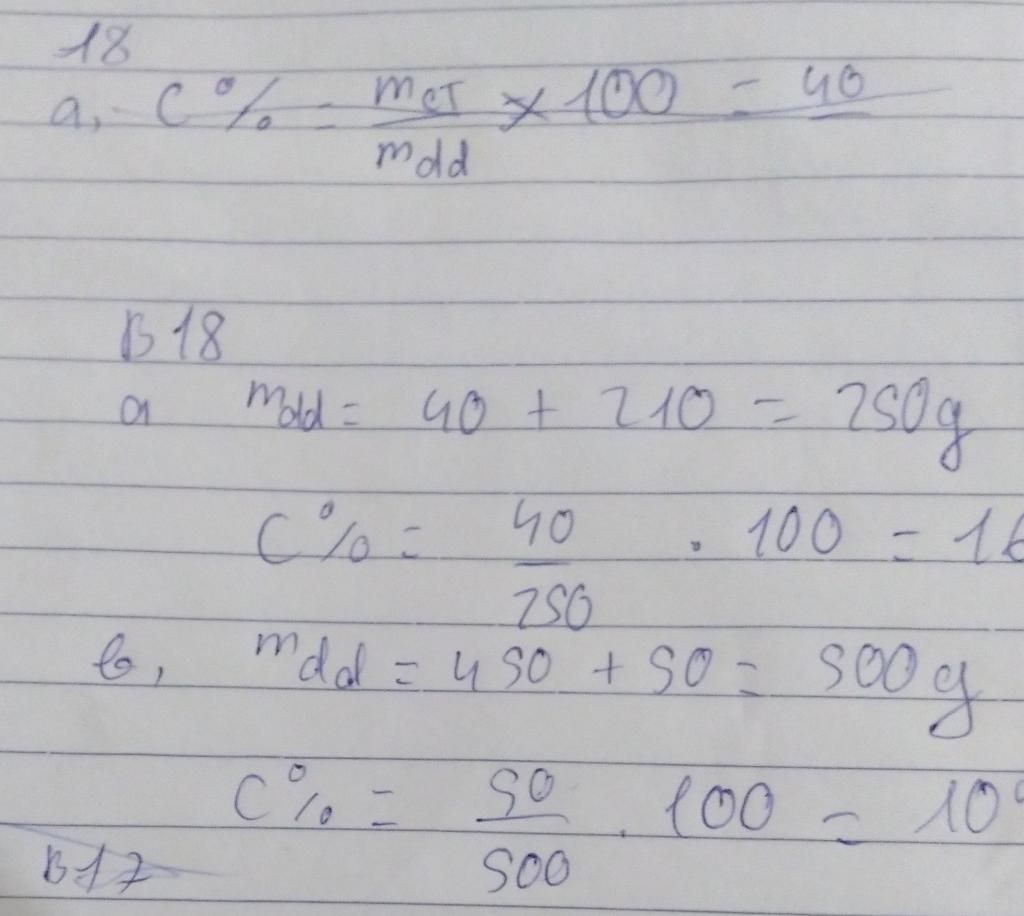 18
a, C% = mct/mdd × 100 = 40
B18
a mdd = 40 + 210 = 250g
C% = 40/250 . 100 = 16
b, mdd = 450 + 50 = 500g
C% = 50/500 . 100 = 10%
B17